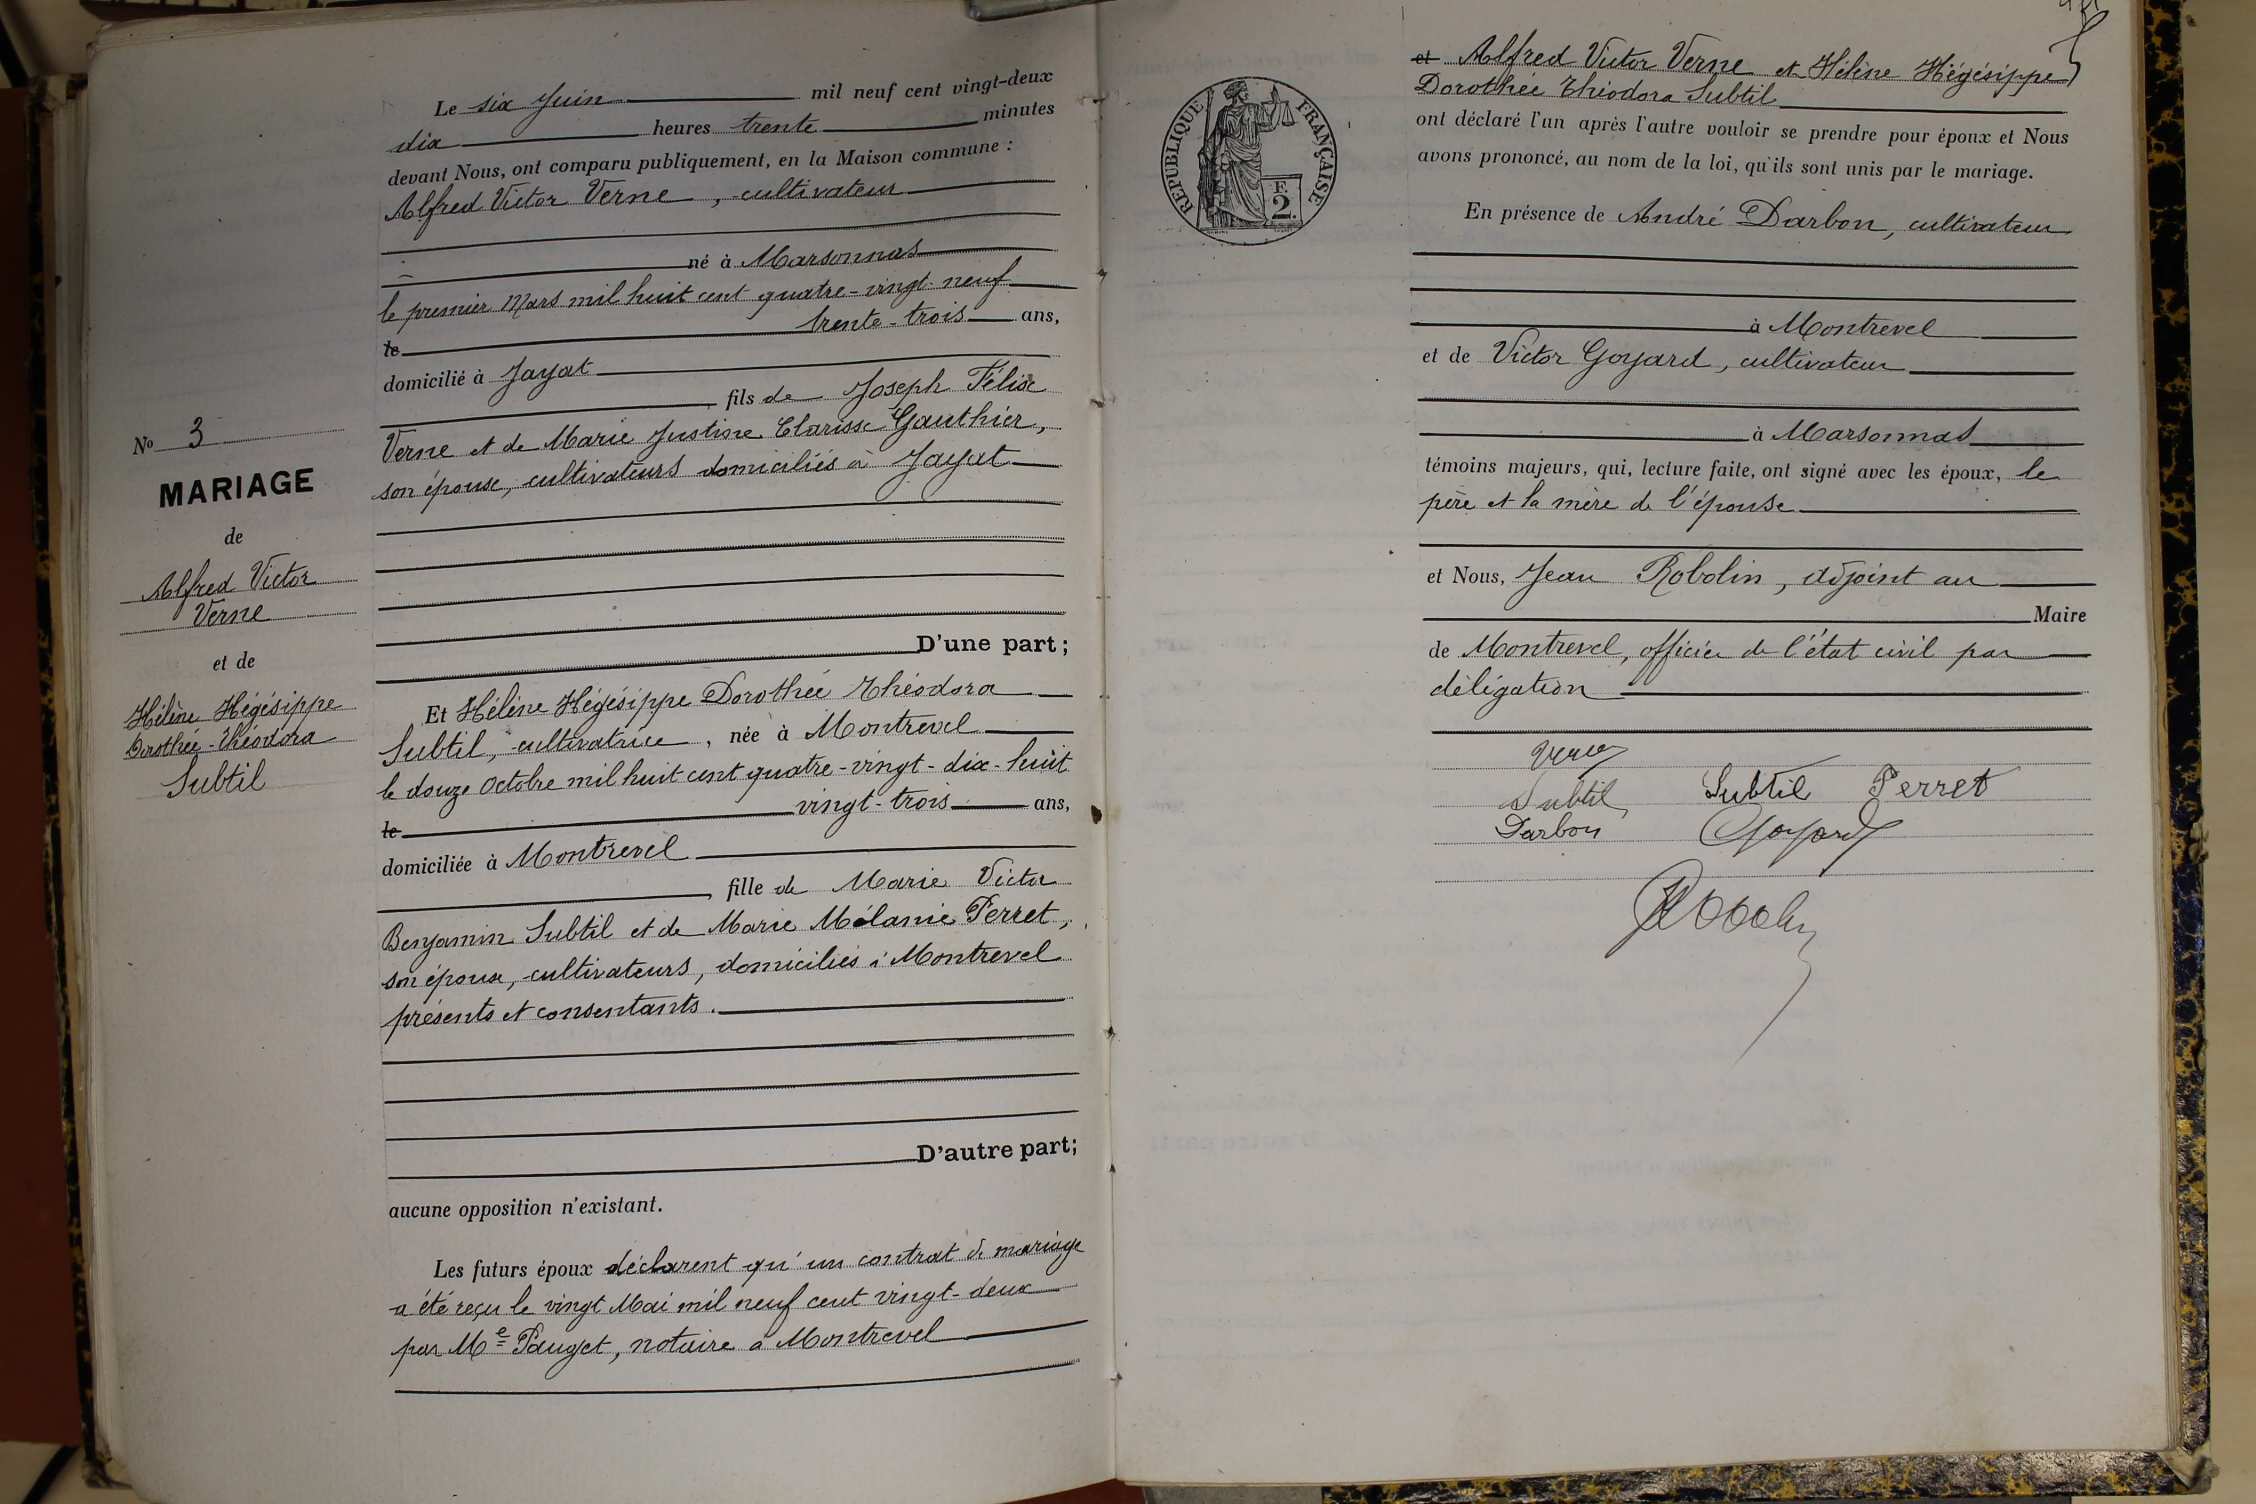 No 3
MARIAGE
de
Alfred Victor
Verne
et de
Hélène Hégésippe
Dorothée-Théodora
Subtil
Le six Juin mil neuf cent vingt-deux
dix heures trente minutes
devant Nous, ont comparu publiquement, en la Maison commune :
Alfred Victor Verne, cultivateur
né à Marsonnas
le premier Mars mil huit cent quatre-vingt-neuf
trente-trois ans,
le
domicilié à Jayat
fils de Joseph Félix
Verne et de Marie Justine Clarisse Gauthier,
son épouse, cultivateurs domiciliés à Jayat
D'une part;
Et Hélène Hégésippe Dorothée Théodora
Subtil, cultivatrice, née à Montrevel
le douze Octobre mil huit cent quatre-vingt-dix-huit
le vingt-trois ans,
domiciliée à Montrevel
, fille de Marie Victor
Benjamin Subtil et de Marie Mélanie Perret,
son épouse, cultivateurs, domiciliés à Montrevel
présents et consentants.
D'autre part;
aucune opposition n'existant.
Les futurs époux déclarent qu'un contrat de mariage
a été reçu le vingt Mai mil neuf cent vingt-deux
par Me Pauget, notaire à Montrevel
RÉPUBLIQUE FRANÇAISE
F.
2.
et Alfred Victor Verne et Hélène Hégésippe
Dorothée Théodora Subtil
ont déclaré l'un après l'autre vouloir se prendre pour époux et Nous
avons prononcé, au nom de la loi, qu'ils sont unis par le mariage.
En présence de André Darbon, cultivateur
à Montrevel
et de Victor Goyard, cultivateur
à Marsonnas
témoins majeurs, qui, lecture faite, ont signé avec les époux, le
père et la mère de l'épouse
et Nous, Jean Robolin, adjoint au
Maire
de Montrevel, officier de l'état civil par
délégation
Verne
Subtil Subtil Perret
Darbon Goyard
Robolin